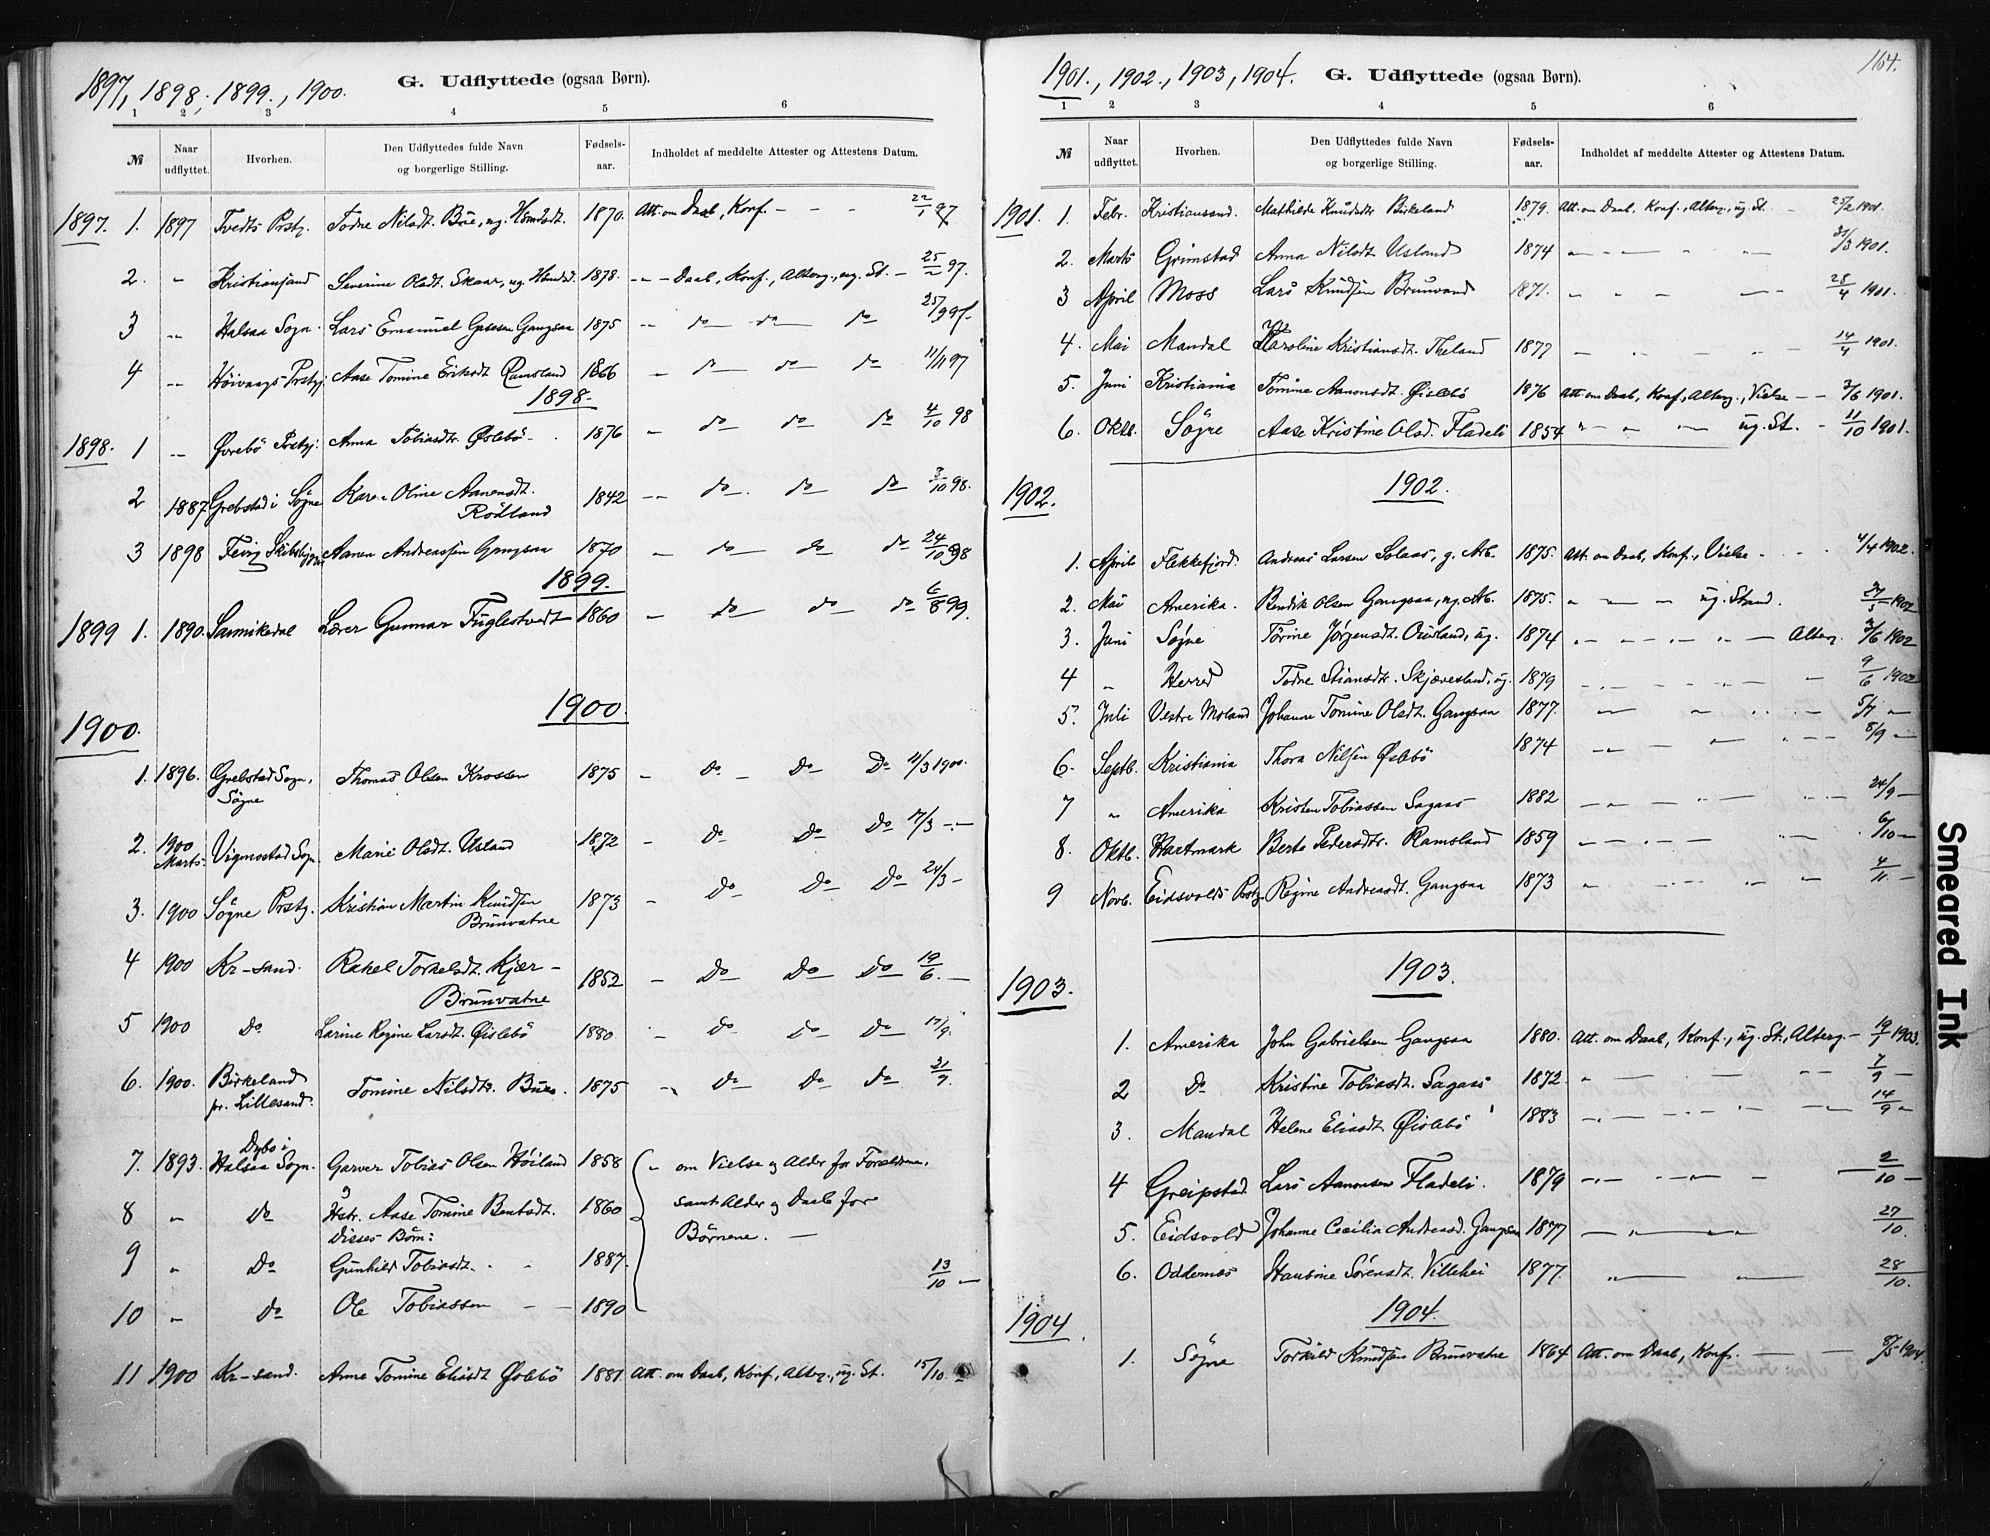 1897, 1898, 1899., 1900. G. Udflyttede (ogsaa Børn).
1 2 3 4 5 6
№ Naar udflyttet. Hvorhen. Den Udflyttedes fulde Navn og borgerlige Stilling. Fødsels-aar. Indholdet af meddelte Attester og Attestens Datum.
1897. 1. 1897 Tvedts Prstgj. Todne Nilsdt. Bue, ug. 1870. Att. om Daab, Konf. - - - 22/1 97
2. " Kristiansand Severine Olsdt. Skaar, ug. 1878. - " - Daab, Konf., Alterg., ug. St. - 25/2 97.
3 " Halsaa Sogn. Lars Emanuel Gangsaa 1875 - " do do do 25/9 97
4 " Høivaags Prstgj. Aase Tomine Eriksdt Ramsland 1866 - do do do 11/11 97
1898.
1898. 1 " Øvrebö Prstgj. Anna Tobiasdtr. Øslebö - 1876 - do do do 4/10 98
2 1887 Grebstad i Sögne Karen Oline Aanensdt. 1842 - do do do 3/10 98.
Rödland
3 1898 Aanen Andreassen Gangsaa 1870 - do do do 24/10 98
1899.
1899 1. 1890. Sannikedal Lærer Gunnar Fuglestvedt 1860 - do do do 6/8 99.
1900.
1900.
1. 1896. Grebstad Sogn, Thomas Olsen Krossen 1875 - Do - Do Do 11/3 1900.
Sögne
2. 1900 Marts. Vigmostad Sogn. Marie Olsdt. Usland 1872 - Do Do Do 17/3 -.-
3. 1900 Sögne Prstgj. Kristian Martin Knudsen 1873 - Do Do Do 24/3 -
Brunvatne
4 1900 Kr-sand. Rakel Torkelsdt. Kjær- 1852 - Do Do Do 19/6. -
Brunvatne
5 1900 Do Larine Regine Larsdt. Øislebö 1880 - Do Do Do 17/9.
6. 1900. Birkeland Tomine Nilsdtr. Bue. 1875 " Do Do Do 21/9.
pr. Lillesand.
7. 1893. Dybo i Halsaa Sogn. Garver Tobias Olsen Höiland 1858 " om Vielse og Alder for Forældrene,
8 " Do Hstr. Aase Tomine Bentsdt. 1860 samt Alder og Daab for
Disses Börn: Børnene. -
9 " Do Gunhild Tobiasdt. - - 1887. 13/10 -
10 " Do Ole Tobiassen - - 1890
11 1900 Kr-sand. Anne Tomine Eliasdt Øslebö 1881 Att. om Daab, Konf., Alterg., ug. St. 15/10.
1901., 1902., 1903, 1904. G. Udflyttede (ogsaa Børn). 164.
1 2 3 4 5 6
№ Naar udflyttet. Hvorhen. Den Udflyttedes fulde Navn og borgerlige Stilling. Fødsels-aar. Indholdet af meddelte Attester og Attestens Datum.
1901. 1. Febr. Kristiansand. Mathilde Knudsdtr Birkeland 1879. Att. om Daab, Konf., Alterg., ug. St. - 25/2 1901.
2. Marts Grimstad Anna Nilsdt Usland 1874 - - - " " - 1901.
3 April Moss Lars Knudsen Brunvand 1871. - - - - 28/4 1901.
4. Mai Mandal Karoline Kristiansdt. Theland 1877 - " " - - 14/4 1901.
5. Juni Kristiania Tomine Aanonsdt. Øislebö 1876 Att. om Daab, Konf., Alterg., Vielse - - 3/6 1901.
6. Oktb. Sögne Aase Kristine Olsd. Fladeli 1854 " - " - ug. St. - 11/10 1901.
1902. 1902.
1. April Flekkefjord. Andreas Larsen Solaas, g. Arb. 1875. Att. om Daab, Konf., Vielse - - - 4/4 1902.
2. Mai Amerika. Bendik Olsen Gangsaa, ug. Arb. 1875. " - - ug. Stand. 1902
3. Juni Søgne Törine Jørgensdt. Ousland, ug. 1874 - - - " - Alterg. 3/6 1902
4 " Herred Todne Stiansdtr. Skjævesland, ug. 1879 - - - - - 9/6 1902
5. Juli Vestre Moland Johanne Tomine Olsdt. Gangsaa 1877. - " " - 5/7 -
6. Septb. Kristiania Thora Nilsen Øslebö 1874 - " - - - 8/9 -
7 " Amerika Kristen Tobiassen Sagaas 1882 - " - - - 24/9 -
8. Oktb. Hartmark Berte Pedersdtr. Ramsland 1859 - - - - - 6/10 -
9 Novb. Eidsvolds Prstgj. Regine Andreasdt. Gangsaa 1873 " - - " - 4/11. -
1903. 1903.
1. Amerika John Gabrielsen Gangsaa 1880. Att. om Daab, Konf., ug. St., Alterg. - 1903.
2 Do Kristine Tobiasdt. Sagaas 1872. " - - - - 7/9 -
3. Mandal Helene Eliasdt. Øislebö 1883 - " - - - 14/9 "
4 Greipstad. Lars Aanonsen Fladeli. 1879 - - - " - 2/10 -
5. Eidsvold Johanne Cecilia Andreasd. Gangsaa 1877 - " - " 27/10.
6. Oddernes Staubine Sørensdt. Villehei 1877. " - - " 28/10.
1904. 1904.
1. Sögne Torkild Knudsen Brunvatne 1864 Att. om Daab, Konf. - - 8/5 1904.
Smeared Ink